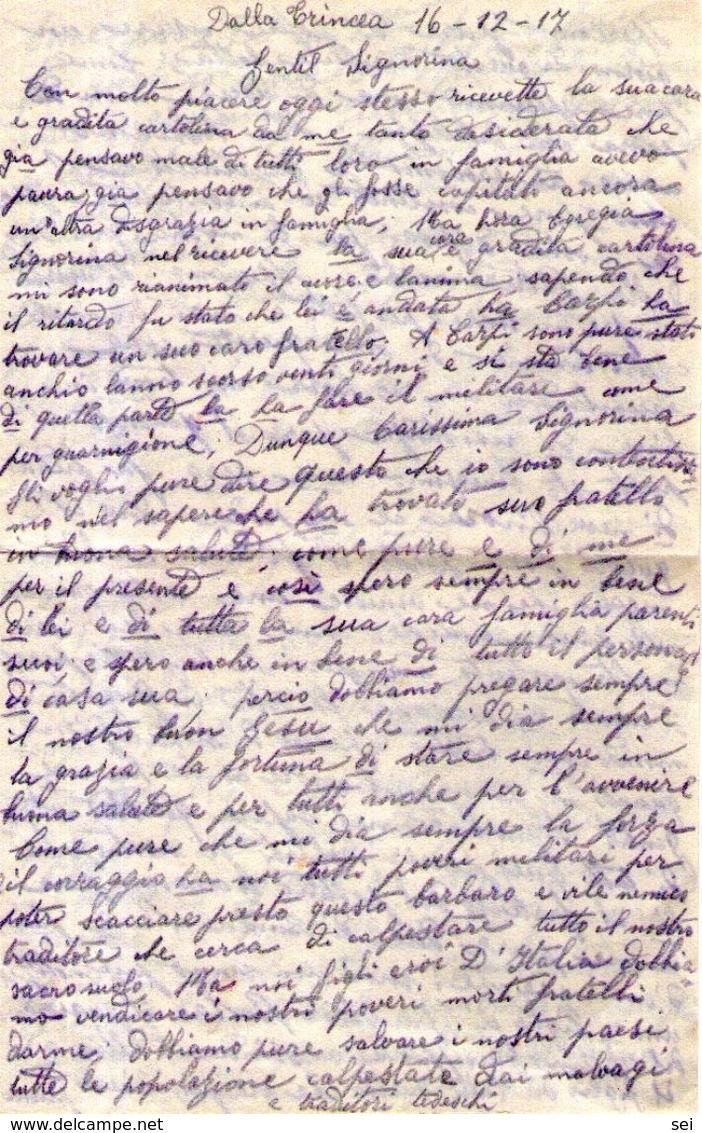 Dalla Trincea 16-12-17
Gentil Signorina
Con molto piacere oggi stesso ricevette la sua cara
e gradita cartolina da me tanto desiderata che
gia pensavo male di tutti loro in famiglia avevo
paura, gia pensavo che gli fosse capitati ancora
un'altra disgrazia in famiglia; Ma hora Egregia
Signorina nel ricevere la sua cara e gradita cartolina
mi sono rianimato il cuore e lanima sapendo che
il ritardo fu stato che lei è andata ha Carpi ha
trovare un suo caro fratello. A Carpi sono pure stati
anchio lanno scorso venti giorni e si sta bene
di quella parte la ha fare il militare come
per guarnigione; Dunque Carissima Signorina
gli voglio pure dire questo che io sono contentissi
mo nel sapere che ha trovato suo fratello
in buona salute, come pure e di me
per il presente e così spero sempre in bene
di lei e di tutta la sua cara famiglia parenti
suoi e spero anche in bene di tutto il personal
di casa sua, percio dobbiamo pregare sempre
il nostro buon Gesu che mi dia sempre
la grazia e la fortuna di stare sempre in
buona salute e per tutti anche per l'avvenire
Come pure che mi dia sempre la forza
il corraggio ha noi tutti poveri militari per
poter scacciare presto questo barbaro e vile nemico
traditore che cerca di calpestare tutto il nostro
sacro suolo, Ma noi figli eroi D'Italia dobbia
mo vendicare i nostri poveri morti fratelli
darme; dobbiamo pure salvare i nostri paesi
tutte le popolazione calpestate dai malvagi
e traditori tedeschi
sei